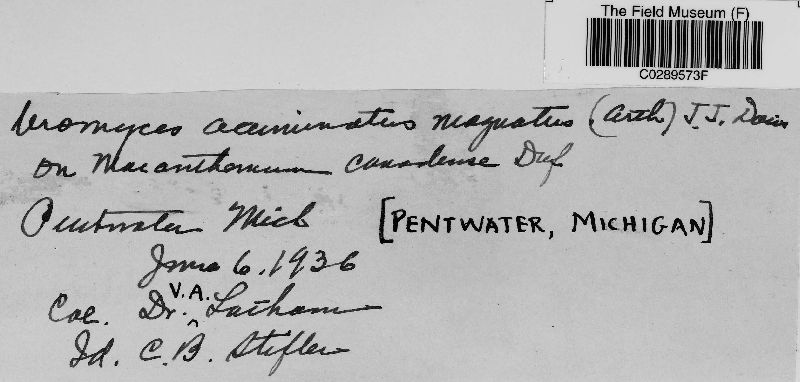 The Field Museum (F)
C0289573F
Uromyces acuminatus magnatus (Arth.) J.J. Davis
on Maianthemum canadense Desf
Pentwater Mich [PENTWATER, MICHIGAN]
June 6, 1936
Coe. Dr. V.A. Latham
Id. C.B. Stifler